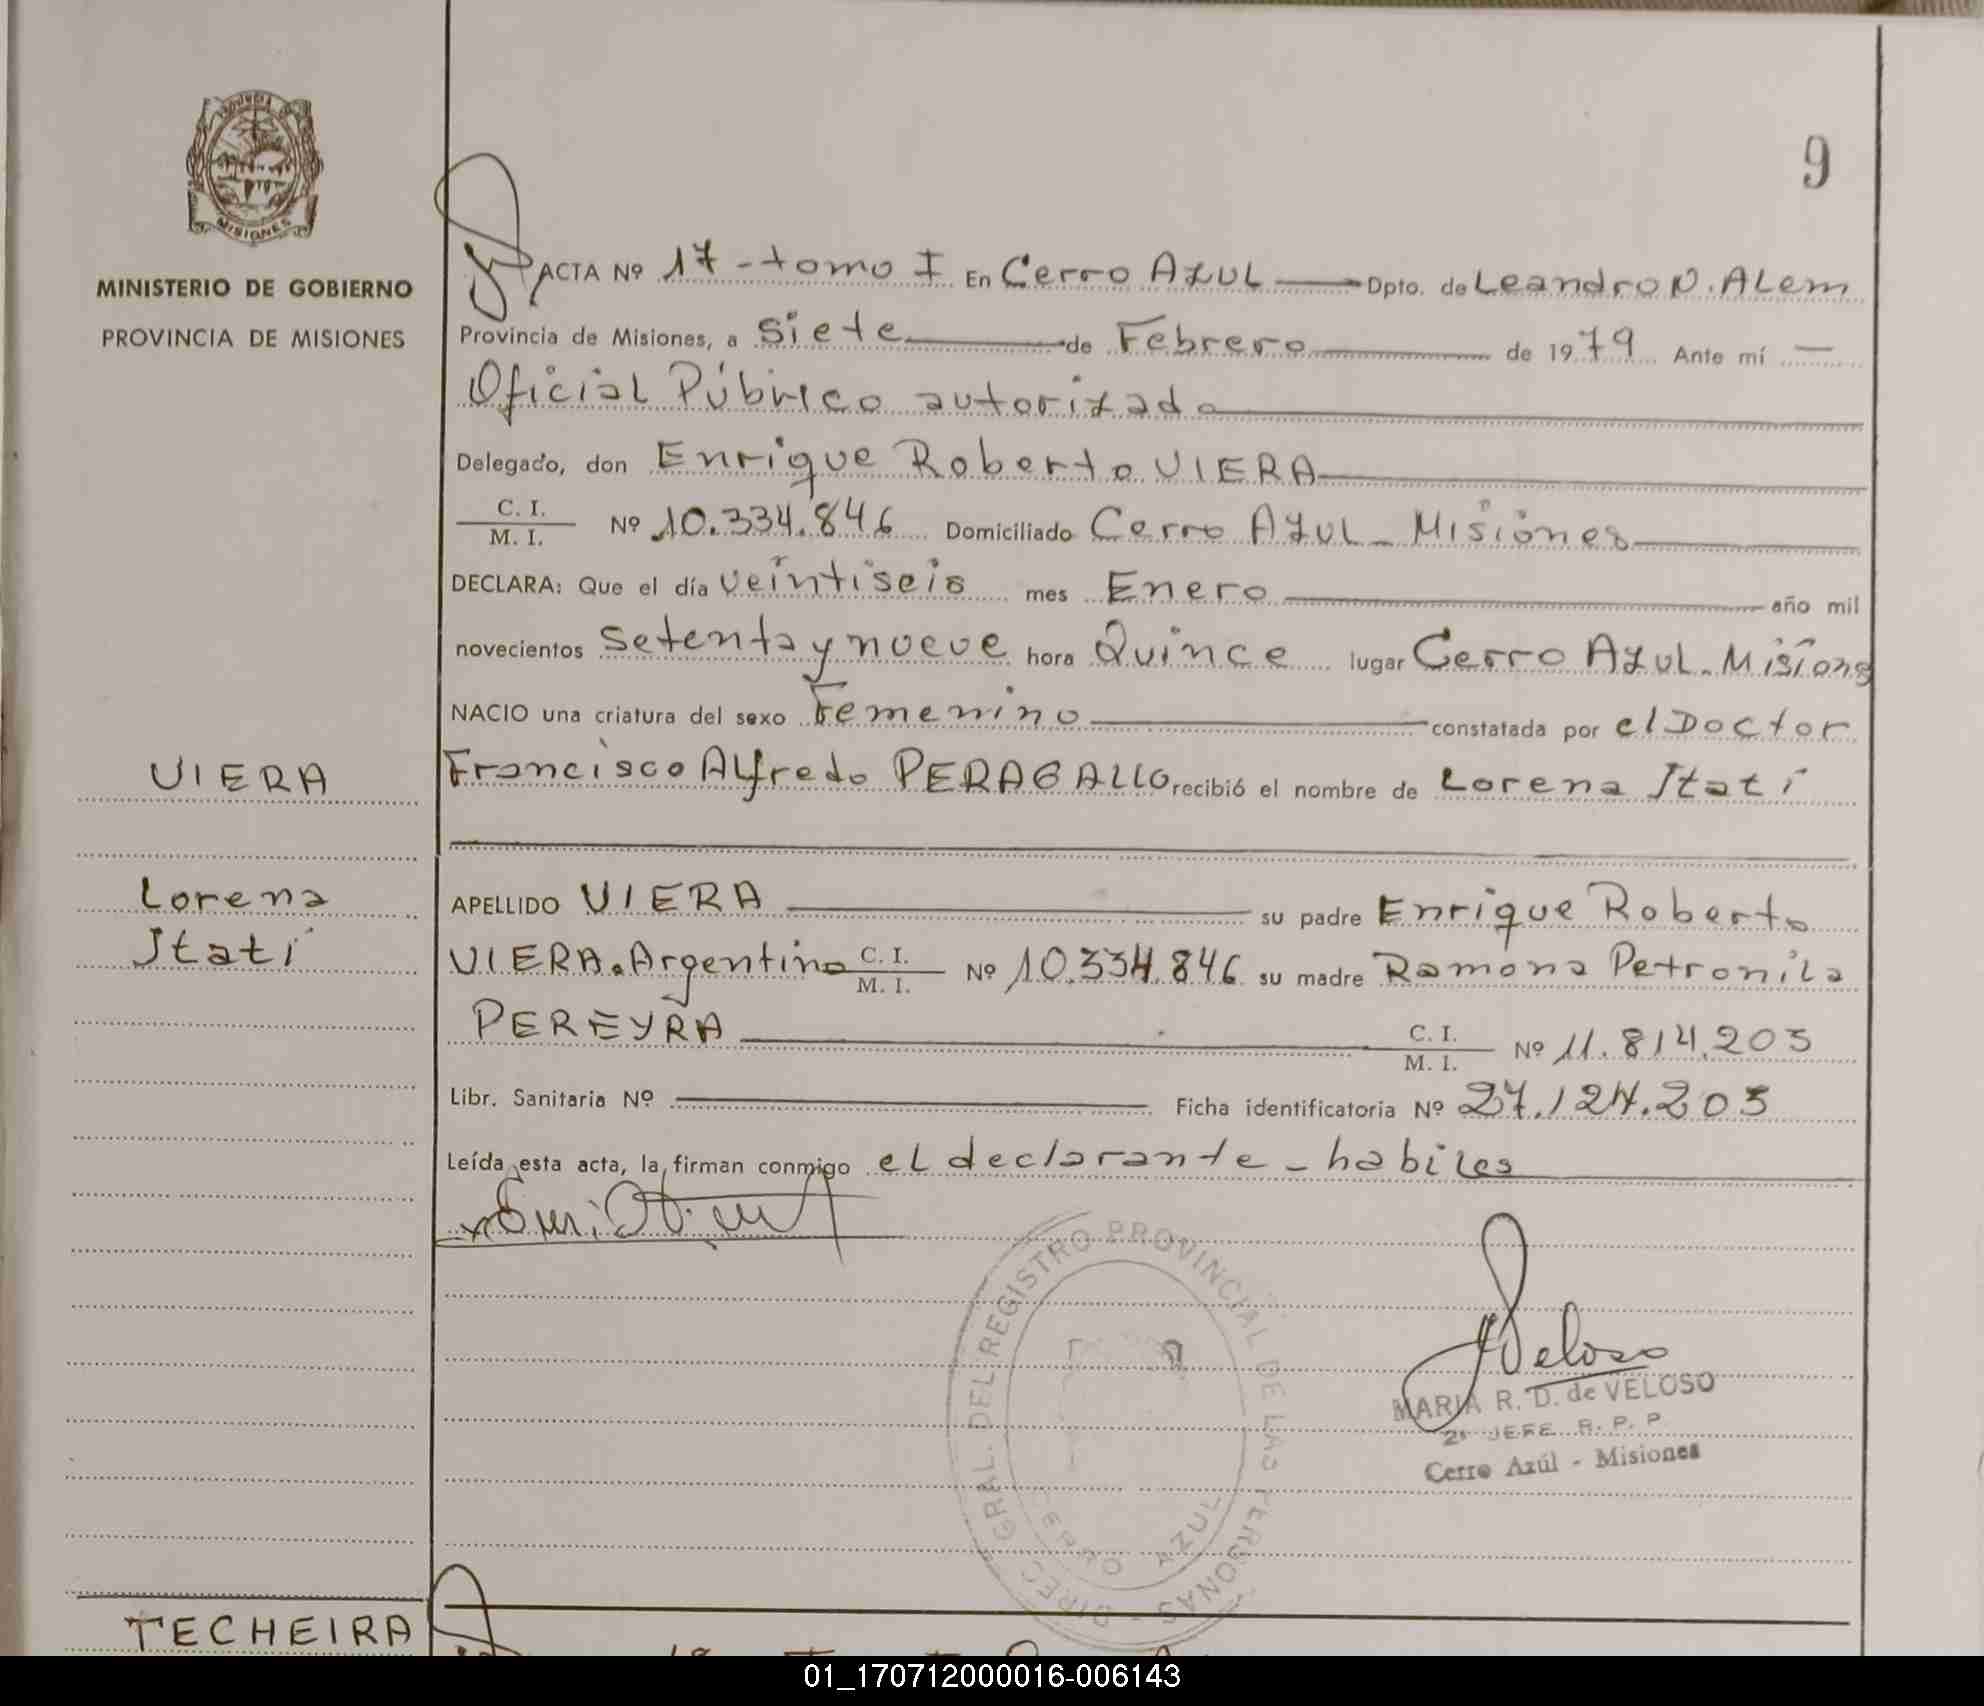 PROVINCIA DE
MISIONES
MINISTERIO DE GOBIERNO
PROVINCIA DE MISIONES
9
ACTA Nº 17 - tomo I En Cerro AZUL Dpto. de Leandro N. ALem
Provincia de Misiones, a siete de Febrero de 1979 Ante mí —
Oficial Público autorizado
Delegado, don Enrique Roberto VIERA
C. I.
M. I. Nº 10.334.846 Domiciliado Cerro AZUL - Misiones
DECLARA: Que el día veintiseis mes Enero año mil
novecientos setenta y nueve hora Quince lugar Cerro AZUL - Misiones
NACIO una criatura del sexo Femenino constatada por el Doctor
Francisco Alfredo PERAGALLO recibió el nombre de Lorena Itatí
VIERA
Lorena
Itatí
APELLIDO VIERA su padre Enrique Roberto
VIERA. Argentino C. I.
M. I. Nº 10.334.846 su madre Ramona Petronila
PEREYRA C. I.
M. I. Nº 11.814.203
Libr. Sanitaria Nº Ficha identificatoria Nº 27.124.203
Leída esta acta, la firman conmigo el declarante - habiles
DIREC. GRAL. DEL REGISTRO PROVINCIAL DE LAS PERSONAS -
CERRO AZUL
Veloso
MARIA R. D. de VELOSO
2º JEFE R. P. P.
Cerro Azúl - Misiones
TECHEIRA
01_170712000016-006143